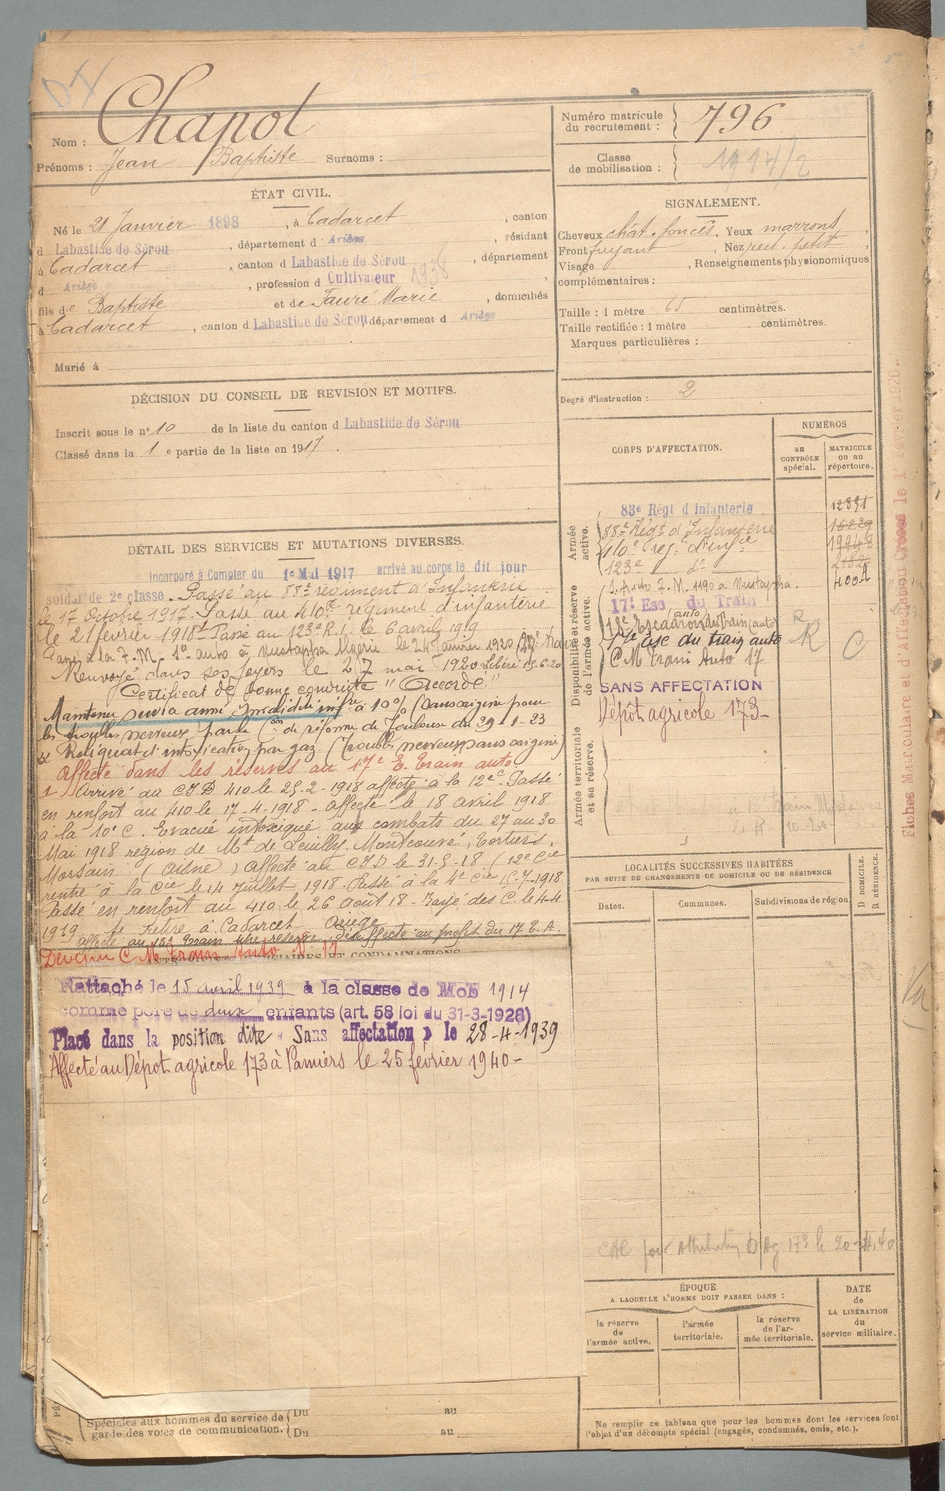 Nom : Chapot
Prénoms : Jean Baptiste Surnoms :
Numéro matricule du recrutement : 796
Classe de mobilisation : 1914/2
ÉTAT CIVIL.
Né le 21 Janvier 1898, à Cadarcet, canton
d Labastide de Sérou, département d Ariège, résidant
à Cadarcet, canton d Labastide de Sérou, département
d Ariège, profession d Cultivateur 1938
fils de Baptiste et de Faure Marie, domiciliés
à Cadarcet, canton d Labastide de Sérou, département d Ariège
Marié à
SIGNALEMENT.
Cheveux chât. foncés, Yeux marrons,
Front fuyant, Nez rect. petit,
Visage, Renseignements physionomiques
complémentaires :
Taille : 1 mètre 65 centimètres.
Taille rectifiée : 1 mètre centimètres.
Marques particulières :
Degré d'instruction : 2
DÉCISION DU CONSEIL DE REVISION ET MOTIFS.
Inscrit sous le n° 10 de la liste du canton d Labastide de Sérou
Classé dans la 1 e partie de la liste en 1917.
DÉTAIL DES SERVICES ET MUTATIONS DIVERSES.
Incorporé à Compter du 1e Mai 1917 arrivé au corps le dit jour
soldat de 2e classe. Passé au 88e régiment d'Infanterie
le 17 Octobre 1917. Passé au 410e régiment d'infanterie
le 21 février 1918. Passé au 123e R.I. le 6 avril 1919
Passé à la F.M. 1e auto à Mustapha Algérie le 24 Janvier 1920
Renvoyé dans ses foyers le 27 mai 1920
Certificat de bonne conduite "Accordé"
Maintenu service armé Invalidité infre à 10% (Sans origine) pour
les troubles nerveux par la Con de réforme de Toulouse du 29-1-23
Reliquat d'intoxication par gaz (troubles nerveux sans origine)
Affecté dans les réserves au 17e E. Train auto
Arrivé au C.I.D. 410 le 25-2-1918 affecté à la 12e Cie Passé
en renfort au 410 le 17-4-1918. affecté le 18 avril 1918
à la 10e C. Evacué intoxiqué aux combats du 27 au 30
Mai 1918 région de Mt de Leuilly, Montcouvé, Tertiers,
Morsain (Aisne) affecté au C.I.D. le 31-5-18 (12e Cie
rentré à la Cie le 14 Juillet 1918. Passé à la 4e Cie
Passé en renfort au 410 le 26 Août 18. Rayé des C. le 4-4
1919 se retire à Cadarcet Ariège
affecté au 18e Train réserve. Désaffecté au profit du 17 C.A.
Devenu C M Train Auto N. 17
Rattaché le 15 avril 1939 à la classe de Mob 1914
comme père de deux enfants (art. 58 loi du 31-3-1928)
Placé dans la position dite « Sans affectation » le 28-4-1939
Affecté au Dépôt agricole 173 à Pamiers le 25 février 1940-
CORPS D'AFFECTATION.
NUMÉROS
au CONTRÔLE spécial.
MATRICULE ou au répertoire.
Armée active.
83e Régt d'Infanterie 12891
88e Régt d'Infanterie 16239
410e reg. d'infie 19948
123e do
S. Auto F.M. 1190 à Mustapha. 400A
Disponibilité et réserve de l'armée active.
17e Esc du Train
18e Escadron du Train (auto)
17e esc du train auto R C
C M Train Auto 17
SANS AFFECTATION
Dépôt agricole 173-
Armée territoriale et sa réserve.
LOCALITÉS SUCCESSIVES HABITÉES
PAR SUITE DE CHANGEMENTS DE DOMICILE OU DE RÉSIDENCE
Dates.
Communes.
Subdivisions de région
D DOMICILE.
R RÉSIDENCE.
ÉPOQUE
A LAQUELLE L'HOMME DOIT PASSER DANS :
la réserve de l'armée active.
l'armée territoriale.
la réserve de l'armée territoriale.
DATE de LA LIBÉRATION du service militaire.
Ne remplir ce tableau que pour les hommes dont les services font
l'objet d'un décompte spécial (engagés, condamnés, omis, etc.).
Spéciales aux hommes du service de garde des voies de communication.
Du au
Du au